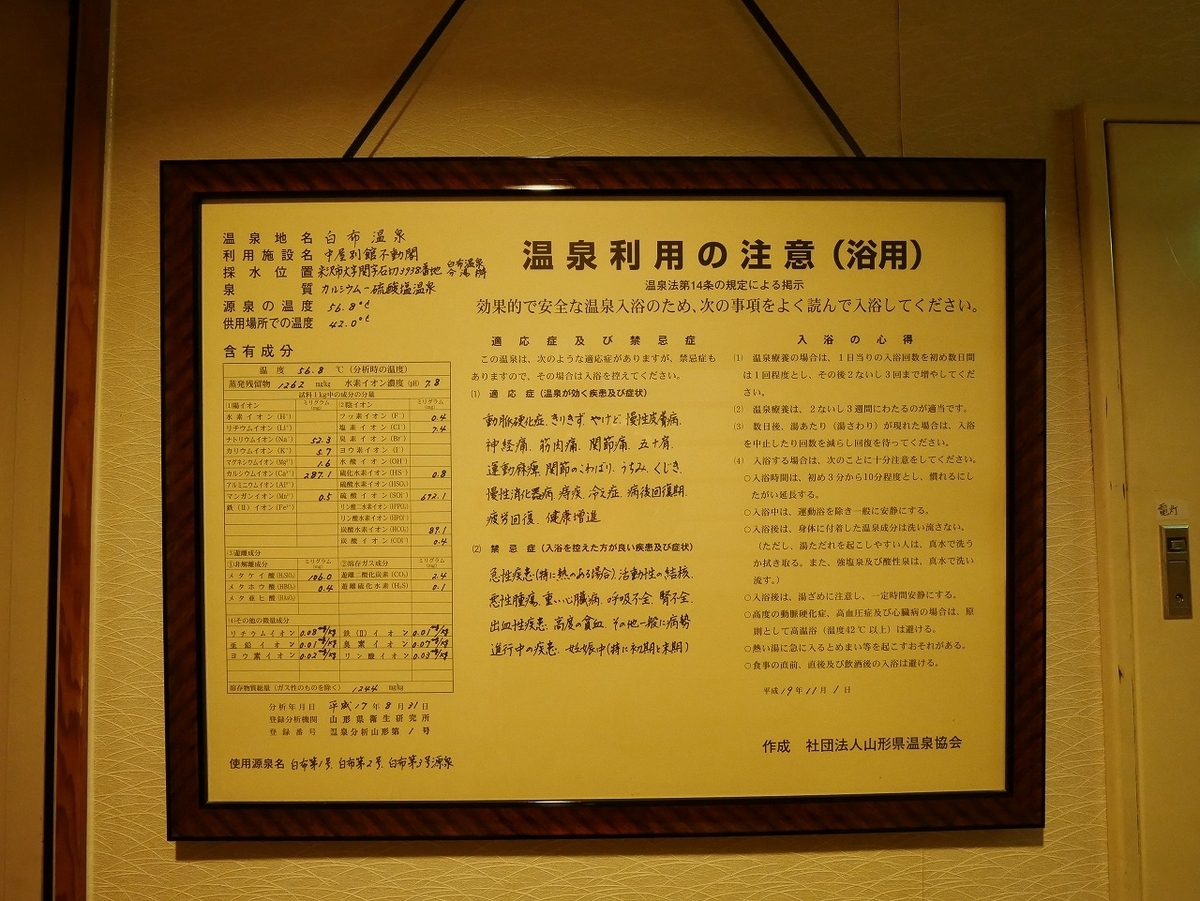 温泉地名 白布温泉
利用施設名 中屋別館不動閣
採水位置 米沢市大字関字石切3938番地 白布温泉
泉質 カルシウムー硫酸塩温泉
源泉の温度 56.8℃
供用場所での温度 42.0℃
含有成分
温度 56.8 ℃(分析時の温度)
蒸発残留物 1262 mg/kg 水素イオン濃度(pH) 7.8
試料1kg中の成分の分量
①陽イオン ミリグラム(mg) ②陰イオン ミリグラム(mg)
水素イオン(H⁺) フッ素イオン(F⁻) 0.4
リチウムイオン(Li⁺) 塩素イオン(Cl⁻) 7.4
ナトリウムイオン(Na⁺) 52.3 臭素イオン(Br⁻)
カリウムイオン(K⁺) 5.7 ヨウ素イオン(I⁻)
マグネシウムイオン(Mg²⁺) 1.6 水酸イオン(OH⁻)
カルシウムイオン(Ca²⁺) 287.1 硫化水素イオン(HS⁻) 0.8
アルミニウムイオン(Al³⁺) 硫酸水素イオン(HSO₄⁻)
マンガンイオン(Mn²⁺) 0.5 硫酸イオン(SO₄²⁻) 692.1
鉄(Ⅱ)イオン(Fe²⁺) リン酸二水素イオン(H₂PO₄⁻)
リン酸水素イオン(HPO₄²⁻)
炭酸水素イオン(HCO₃⁻) 87.1
炭酸イオン(CO₃²⁻) 0.4
③遊離成分
①非解離成分 ミリグラム(mg) ②溶存ガス成分 ミリグラム(mg)
メタケイ酸(H₂SiO₃) 106.0 遊離二酸化炭素(CO₂) 2.4
メタホウ酸(HBO₂) 0.4 遊離硫化水素(H₂S) 0.1
メタ亜ヒ酸(HAsO₂)
(4)その他の微量成分
リチウムイオン 0.08mg/kg 鉄(Ⅱ)イオン 0.01mg/kg
亜鉛イオン 0.01mg/kg 臭素イオン 0.07mg/kg
ヨウ素イオン 0.02mg/kg リン酸イオン 0.03mg/kg
溶存物質総量(ガス性のものを除く) 1244 mg/kg
分析年月日 平成17年8月31日
登録分析機関 山形県衛生研究所
登録番号 温泉分析山形第1号
使用源泉名 白布第1号、白布第2号、白布第3号源泉
温泉利用の注意(浴用)
温泉法第14条の規定による掲示
効果的で安全な温泉入浴のため、次の事項をよく読んで入浴してください。
適応症及び禁忌症
この温泉は、次のような適応症がありますが、禁忌症も
ありますので、その場合は入浴を控えてください。
(1) 適応症(温泉が効く疾患及び症状)
動脈硬化症、きりきず、やけど、慢性皮膚病、
神経痛、筋肉痛、関節痛、五十肩、
運動麻痺、関節のこわばり、うちみ、くじき、
慢性消化器病、痔疾、冷え症、病後回復期、
疲労回復、健康増進
(2) 禁忌症(入浴を控えた方が良い疾患及び症状)
急性疾患(特に熱のある場合)、活動性の結核、
悪性腫瘍、重い心臓病、呼吸不全、腎不全、
出血性疾患、高度の貧血、その他一般に病勢
進行中の疾患、妊娠中(特に初期と末期)
入浴の心得
(1) 温泉療養の場合は、1日当りの入浴回数を初め数日間
は1回程度とし、その後2ないし3回まで増やしてくだ
さい。
(2) 温泉療養は、2ないし3週間にわたるのが適当です。
(3) 数日後、湯あたり(湯さわり)が現れた場合は、入浴
を中止したり回数を減らし回復を待ってください。
(4) 入浴する場合は、次のことに十分注意をしてください。
○入浴時間は、初め3分から10分程度とし、慣れるにし
たがい延長する。
○入浴中は、運動浴を除き一般に安静にする。
○入浴後は、身体に付着した温泉成分は洗い流さない。
(ただし、湯ただれを起こしやすい人は、真水で洗う
か拭き取る。また、強塩泉及び酸性泉は、真水で洗い
流す。)
○入浴後は、湯ざめに注意し、一定時間安静にする。
○高度の動脈硬化症、高血圧症及び心臓病の場合は、原
則として高温浴(温度42℃以上)は避ける。
○熱い湯に急に入るとめまい等を起こすおそれがある。
○食事の直前、直後及び飲酒後の入浴は避ける。
平成19年11月1日
作成 社団法人山形県温泉協会
電灯